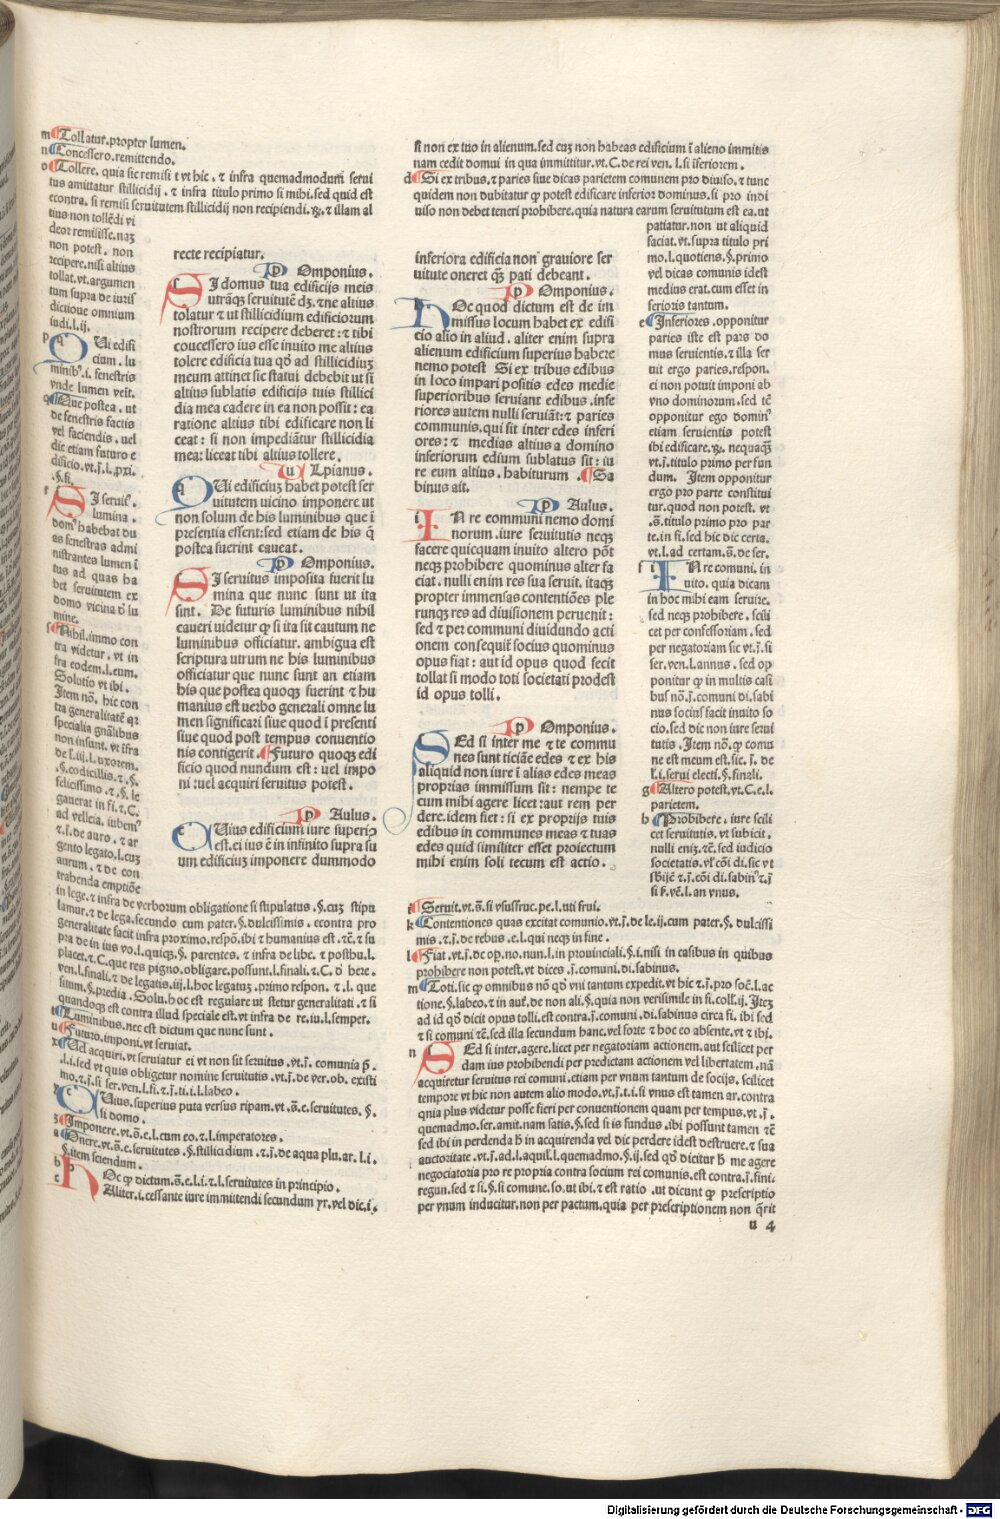 m ¶Tollatur.propter lumen.
n ¶Concessero.remittendo.
o ¶Tollere. quia sic remisi ⁊ vt hic . ⁊ infra quemadmodum serui
tus amittatur stillicidij . ⁊ infra titulo primo si mihi.sed quid est
econtra. si remisi seruitutem stillicidij non recipiendi. ꝟꝫ. ⁊ illam al
tius non tollēdi vi
deor remisisse.naꝫ
non potest . non
recipere.nisi altius
tollat.vt.argumen
tum supra de iuris
dictione omnium
iudi.l.ij.
p QUi edifi
cium . lu
minibꝰ.i. fenestris
vnde lumen veit.
q ¶Que postea . ut
de fenestris factis
vel faciendis . uel
dic etiam futuro e
dificio.vt.j.l.pxi.
.§.fi.
r SI seruiꝰ.
lumina .
domꝰ habebat du
as fenestras admi
nistrantes lumen ī
tus ad quas ha
bet seruitutem ex
domo vicina ō lu
mine.
s ¶Nihil.immo con
tra videtur. vt in
fra eodem.l.eum.
Solutio vt ibi .
Item nō. hic con
tra generalitatē qꝛ
specialia gnālibus
non insunt. vt ifra
de l.iij.l.uxorem.
.§.codicillis.⁊.§.
felicissimo .⁊ .§ le
gauerat in fi.⁊.C.
ad velleia. iubemꝰ
⁊.j.de auro . ⁊ ar
gento legato.l.cuꝫ
aurum . ⁊ de con
trahenda emptiōe
in lege.⁊ infra de verborum obligatione si stipulatus .§.cuꝫ stipu
lamur.⁊ de lega.secundo cum pater.§.dulcissimis . econtra pro
generalitate facit infra proximo.respō.ibi ⁊ humanius est .⁊c̄.⁊ su
pra de in ius vo.l.quiqꝫ.§. parentes. ⁊ infra de libe. ⁊ posthu.l.
placet.⁊.C.que res pigno.obligare.possunt.l.finali.⁊.C. ō here.
ven.l.finali.⁊ de legatis.iij.l.hoc legatuꝫ.primo respon. ⁊ .l. que
situm.§.predia .Solu.hoc est regulare ut stetur generalitati .⁊ si
quandoqꝫ est contra illud speciale est.vt infra de re.iu.l.semper.
t ¶Luminibus.nec est dictum que nunc sunt .
u ¶Futuro.imponi.vt seruiat.
x ¶Uel acquiri.vt seruiatur ei vt non sit seruitus .vt.j. comunia p̄.
.l.i.sed vt quis obligetur nomine seruitutis .vt.j.de ver.ob. existi
mo.⁊.j.si ser.ven.l.fi.⁊.j.ti.i.l.labeo.
y CUius.superius puta versus ripam.vt.s̄.e.seruitutes .§.
si domo .
z ¶Imponere.vt.s̄.e.l.cum eo.⁊.l.imperatores.
a ¶Onere.vt.s̄.e.seruitutes .§.stillicidium .⁊.j.de aqua plu.ar.l.i.
§.item sciendum .
b HOc ꝙ dictum.s̄.e.l.i.⁊.l.seruitutes in principio.
c Aliter.i.cessante iure immittendi secundum yr.vel dic.i.
recte recipiatur.
Pomponius.
SI domus tua edificijs meis
utrāqꝫ seruitutē dꝫ. ⁊ne altius
tolatur ⁊ ut stillicidium edificiorum
nostrorum recipere deberet : ⁊ tibi
coucessero ius esse inuito me altius
tolere edificia tua qō ad stillicidiuꝫ
meum attinet sic statui debebit ut si
altius sublatis edificijs tuis stillici
dia mea cadere in ea non possīt: ea
ratione altius tibi edificare non li
ceat : si non impediātur stillicidia
mea: liceat tibi altius tollere.
Ulpianus.
QUi edificiuꝫ habet potest ser
uitutem uicino imponere ut
non solum de his luminibus que ī
presentia essent:sed etiam de his q̄
postea fuerint caueat.
Pomponius.
SI seruitus imposita fuerit lu
mina que nunc sunt ut ita
sint. De futuris luminibus nihil
caueri uidetur ꝙ si ita sit cautum ne
luminibus officiatur. ambigua est
scriptura utrum ne his luminibus
officiatur que nunc sunt an etiam
his que postea quoqꝫ fuerint ⁊ hu
manius est uerbo generali omne lu
men significari siue quod ī presenti
siue quod post tempus conuentio
nis contigerit. ¶Futuro quoqꝫ edi
ficio quod nundum est : uel impo
ni : uel acquiri seruitus potest.
Paulus.
CUius edificium iure superiꝰ
est.ei ius ē in infinito supra su
um edificiuꝫ imponere dummodo
inferiora edificia non grauiore ser
uitute oneret q̄ꝫ pati debeant.
Pomponius.
HOc quod dictum est de im
missus locum habet ex edifi
cio alio in aliud . aliter enim supra
alienum edificium superius habere
nemo potest Si ex tribus edibus
in loco impari positis edes medie
superioribus seruiant edibus .infe
riores autem nulli seruiāt:⁊ paries
communis.qui sit inter edes inferi
ores:⁊ medias altius a domino
inferiorum edium sublatus sit: iu
re eum altius . habiturum . ¶Sa
binus ait.
Paulus.
IN re communi nemo domi
norum.iure seruitutis neqꝫ
facere quicquam inuito altero pōt
neqꝫ prohibere quominus alter fa
ciat. nulli enim res sua seruit. itaqꝫ
propter immensas contentiōes ple
runqꝫ res ad diuisionem peruenit :
sed ⁊ per communi diuidundo acti
onem consequit̄ socius quominus
opus fiat : aut id opus quod fecit
tollat si modo toti societati prodest
id opus tolli .
Pomponius.
SEd si inter me ⁊ te commu
nes sunt ticiāe edes ⁊ ex his
aliquid non iure ī alias edes meas
proprias immissum sit : nempe te
cum mihi agere licet :aut rem per
dere.idem fiet : si ex proprijs tuis
edibus in communes meas ⁊ tuas
edes quid similiter esset proiectum
mihi enim soli tecum est actio .
st non ex tuo in alienum.sed cuꝫ non habeas edificium ī alieno immitis
nam cedit domui in qua immittitur.vt.C.de rei ven.l.si īferiorem .
d ¶Si ex tribus.⁊ paries siue dicas parietem comunem pro diuiso.⁊ tunc
quidem non dubitatur ꝙ potest edificare inferior dominus.si pro indi
uiso non debet teneri prohibere.quia natura earum seruitutum est ea.ut
patiatur.non ut aliquid
faciat.vt.supra titulo pri
mo.l.quotiens.§.primo
vel dicas comunis idest
medius erat.cum esset in
ferioris tantum.
e ¶Inferiores.opponitur
paries iste est pars do
mus seruientis.⁊ illa ser
uit ergo paries.respon.
ei non potuit imponi ab
vno dominorum.sed tē
opponitur ego dominꝰ
etiam seruientis potest
ibi edificare.ꝟꝫ. nequaqꝫ
vt.j.titulo primo per fun
dum. Item opponitur
ergo pro parte constitui
tur.quod non potest. vt
.s̄.titulo primo pro par
te.in fi.sed hic dic certa.
vt.l.ad certam.s̄.de ser.
f IN re comuni. in
uito. quia dicam
in hoc mihi eam seruire.
sed neqꝫ prohibere . scili
cet per confessoriam . sed
per negatoriam sic vt.j.si
ser.ven.l.annus . sed op
ponitur ꝙ in multis casi
bus̄ nō.j.comuni di.sabi
nus socius̄ facit inuito so
cio.sed dic non iure serui
tutis . Item nō.ꝙ comu
ne est meum est.sic. j. de
l.i.serui electi.§.finali.
g ¶Altero potest.vt.C.e.l.
parietem.
h ¶Prohibere . iure scili
cet seruitutis. vt subicit .
nulli eniꝫ.⁊c̄.sed iudicio
societatis. vl̄ cōi di.sic vt
sbijc̄ ⁊.j.cōi di.sabinꝰ.⁊.j
si ꝟ.vē.l.an vnus.
i ¶Seruit.vt.s̄.si vsusfruc.pe.l.uti frui.
k ¶Contentiones quas excitat comunio.vt.j.de le.ij.cum pater.§. dulcissi
mis .⁊.j.de rebus .e.l.qui neqꝫ in fine.
l ¶Fiat.vt.j.de op.no.nun.l.in prouinciali.§.i.nisi in casibus in quibus
prohibere non potest.vt dices .j.comuni.di.sabinus.
m ¶Toti.sic ꝙ omnibus nō qō vni tantum expedit.vt hic ⁊.j.pro soc̄.l.ac
tione.§.labeo.⁊ in aut̄.de non ali.§.quia non verisimile in fi.coll̄.ij. Iteꝫ
ad id qō dicit opus tolli.est contra.j.comuni.di.sabinus circa fi. ibi sed
⁊ si comuni ⁊c̄.sed illa secundum hanc.vel forte ⁊ hoc eo absente.vt ⁊ ibi.
n SEd si inter.agere.licet per negatoriam actionem.aut scilicet per
dam ius prohibendi per predictam actionem vel libertatem .nā
acquiretur seruitus rei comuni.etiam per vnum tantum de socijs. scilicet
tempore vt hic non autem alio modo.vt.j.t.i.si vnus est tamen ar.contra
qnia plus videtur posse fieri per conuentionem quam per tempus.vt .j.
quemadmo.ser.amit.nam satis .§.sed si is fundus .ibi possunt tamen ⁊c̄
sed ibi in perdenda h̄ in acquirenda vel dic perdere idest destruere.⁊ sua
auctoritate .vt.j.ad.l.aquil̄.l.quemadmo.§.ij.sed qō dicitur h̄ me agere
negociatoria pro re propria contra socium rei comunis.est contra.j.fini.
regun.sed ⁊ si.§.si comune.so.ut ibi.⁊ est ratio .ut dicunt ꝙ prescriptio
per vnum inducitur.non per pactum.quia per prescriptionem non q̄rit
u 4
Digitalisierung gefördert durch die Deutsche Forschungsgemeinschaft - DFG